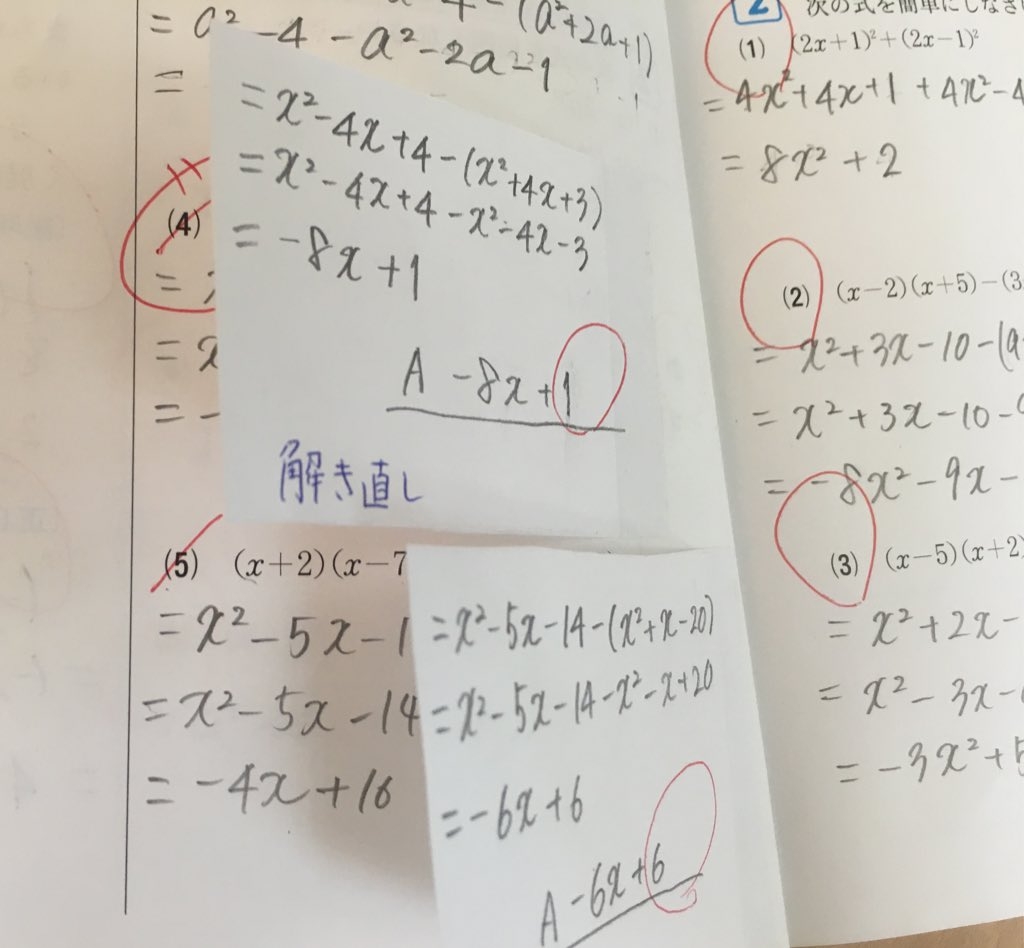 = a² - 4 - a² - 2a - 1
=
(4)
=
= x
= -
= x² - 4x + 4 - (x² + 4x + 3)
= x² - 4x + 4 - x² - 4x - 3
= -8x + 1
A -8x + 1
解き直し
(5) (x+2)(x-7
= x² - 5x - 1
= x² - 5x - 14
= -4x + 16
= x² - 5x - 14 - (x² + x - 20)
= x² - 5x - 14 - x² - x + 20
= -6x + 6
A -6x + 6
2 次の式を簡単にしなさい
(1) (2x+1)²+(2x-1)²
= 4x² + 4x + 1 + 4x² - 4
= 8x² + 2
(2) (x-2)(x+5)-(3
= x² + 3x - 10 - (9
= x² + 3x - 10 -
= -8x² - 9x -
(3) (x-5)(x+2)
= x² + 2x -
= x² - 3x -
= -3x² + 5